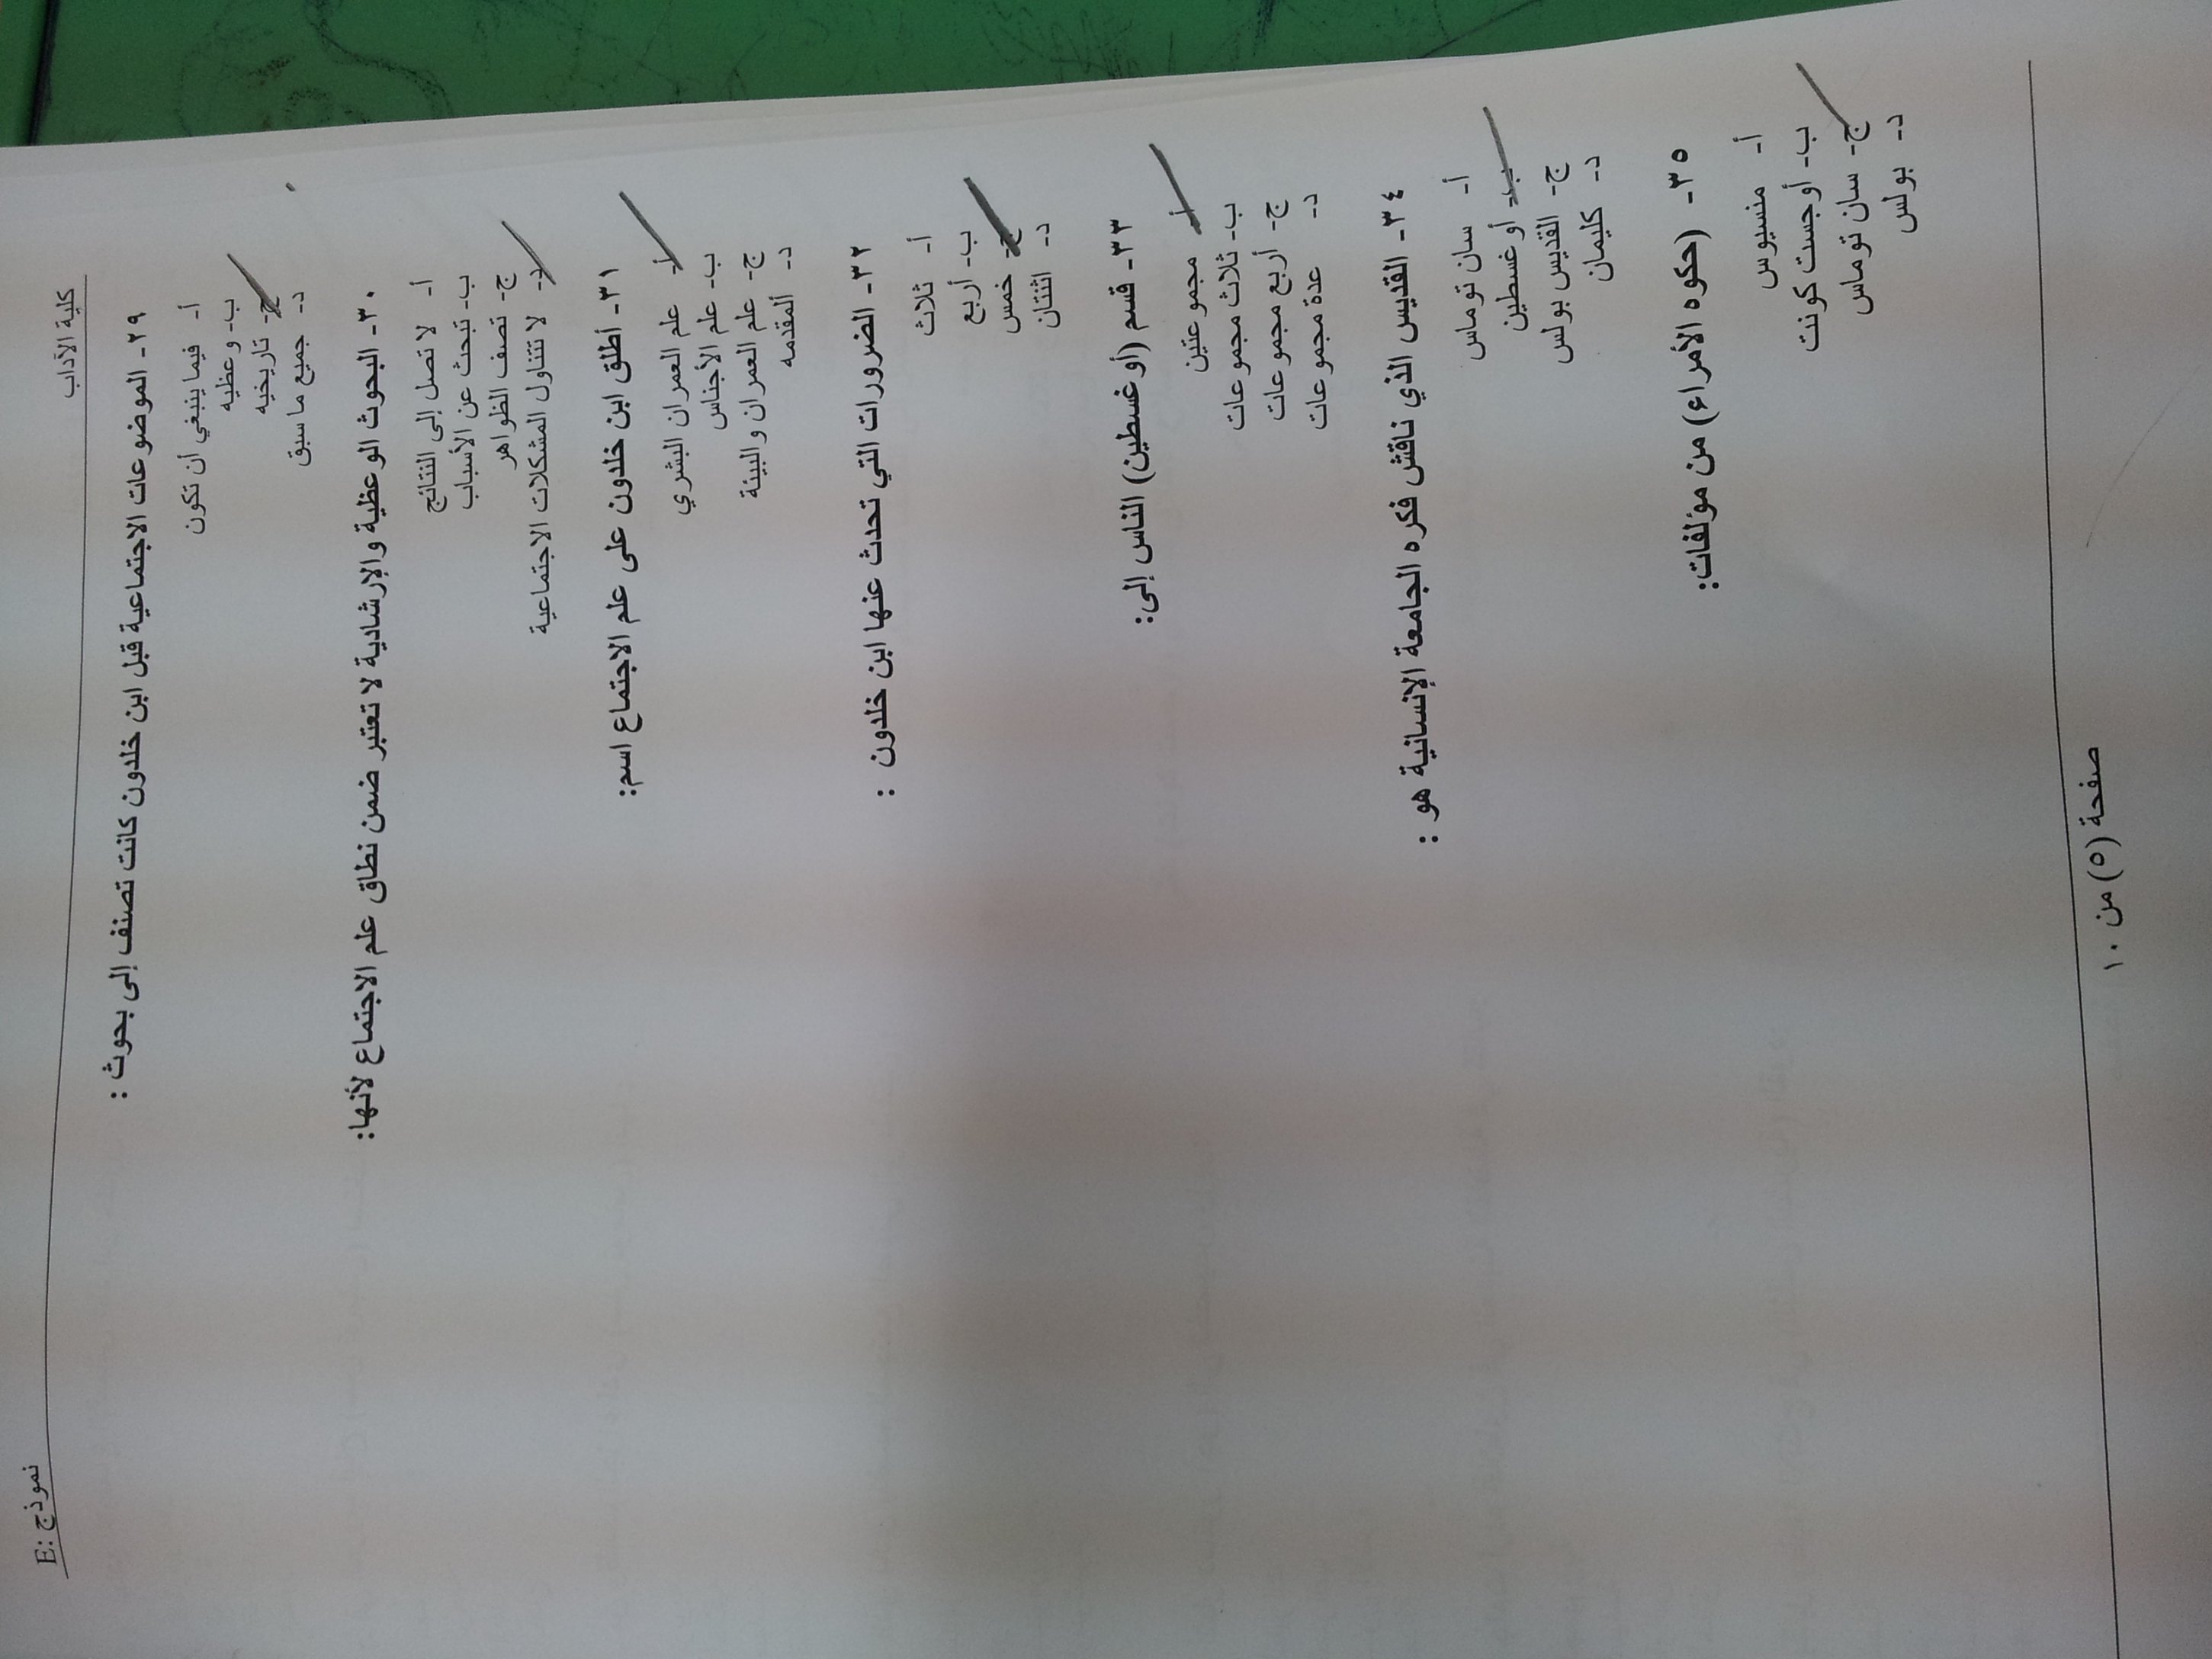 كلية الآداب
نموذج: E
٢٩- الموضوعات الاجتماعية قبل ابن خلدون كانت تصنف إلى بحوث :
أ- فيما ينبغي أن تكون
ب- وعظيه
ج- تاريخيه
د- جميع ما سبق
٣٠- البحوث الوعظية والإرشادية لا تعتبر ضمن نطاق علم الاجتماع لأنها:
أ- لا تصل إلى النتائج
ب- تبحث عن الأسباب
ج- تصف الظواهر
د- لا تتناول المشكلات الاجتماعية
٣١- أطلق ابن خلدون على علم الاجتماع اسم:
أ- علم العمران البشري
ب- علم الأجناس
ج- علم العمران والبيئة
د- المقدمه
٣٢- الضرورات التي تحدث عنها ابن خلدون :
أ- ثلاث
ب- أربع
ج- خمس
د- اثنتان
٣٣- قسم (أوغسطين) الناس إلى:
أ- مجموعتين
ب- ثلاث مجموعات
ج- أربع مجموعات
د- عدة مجموعات
٣٤- القديس الذي ناقش فكره الجامعة الإنسانية هو :
أ- سان توماس
ب- أوغسطين
ج- القديس بولس
د- كليمان
٣٥- (حكوه الأمراء) من مؤلفات:
أ- منسيوس
ب- أوجست كونت
ج- سان توماس
د- بولس
صفحة (٥) من ١٠